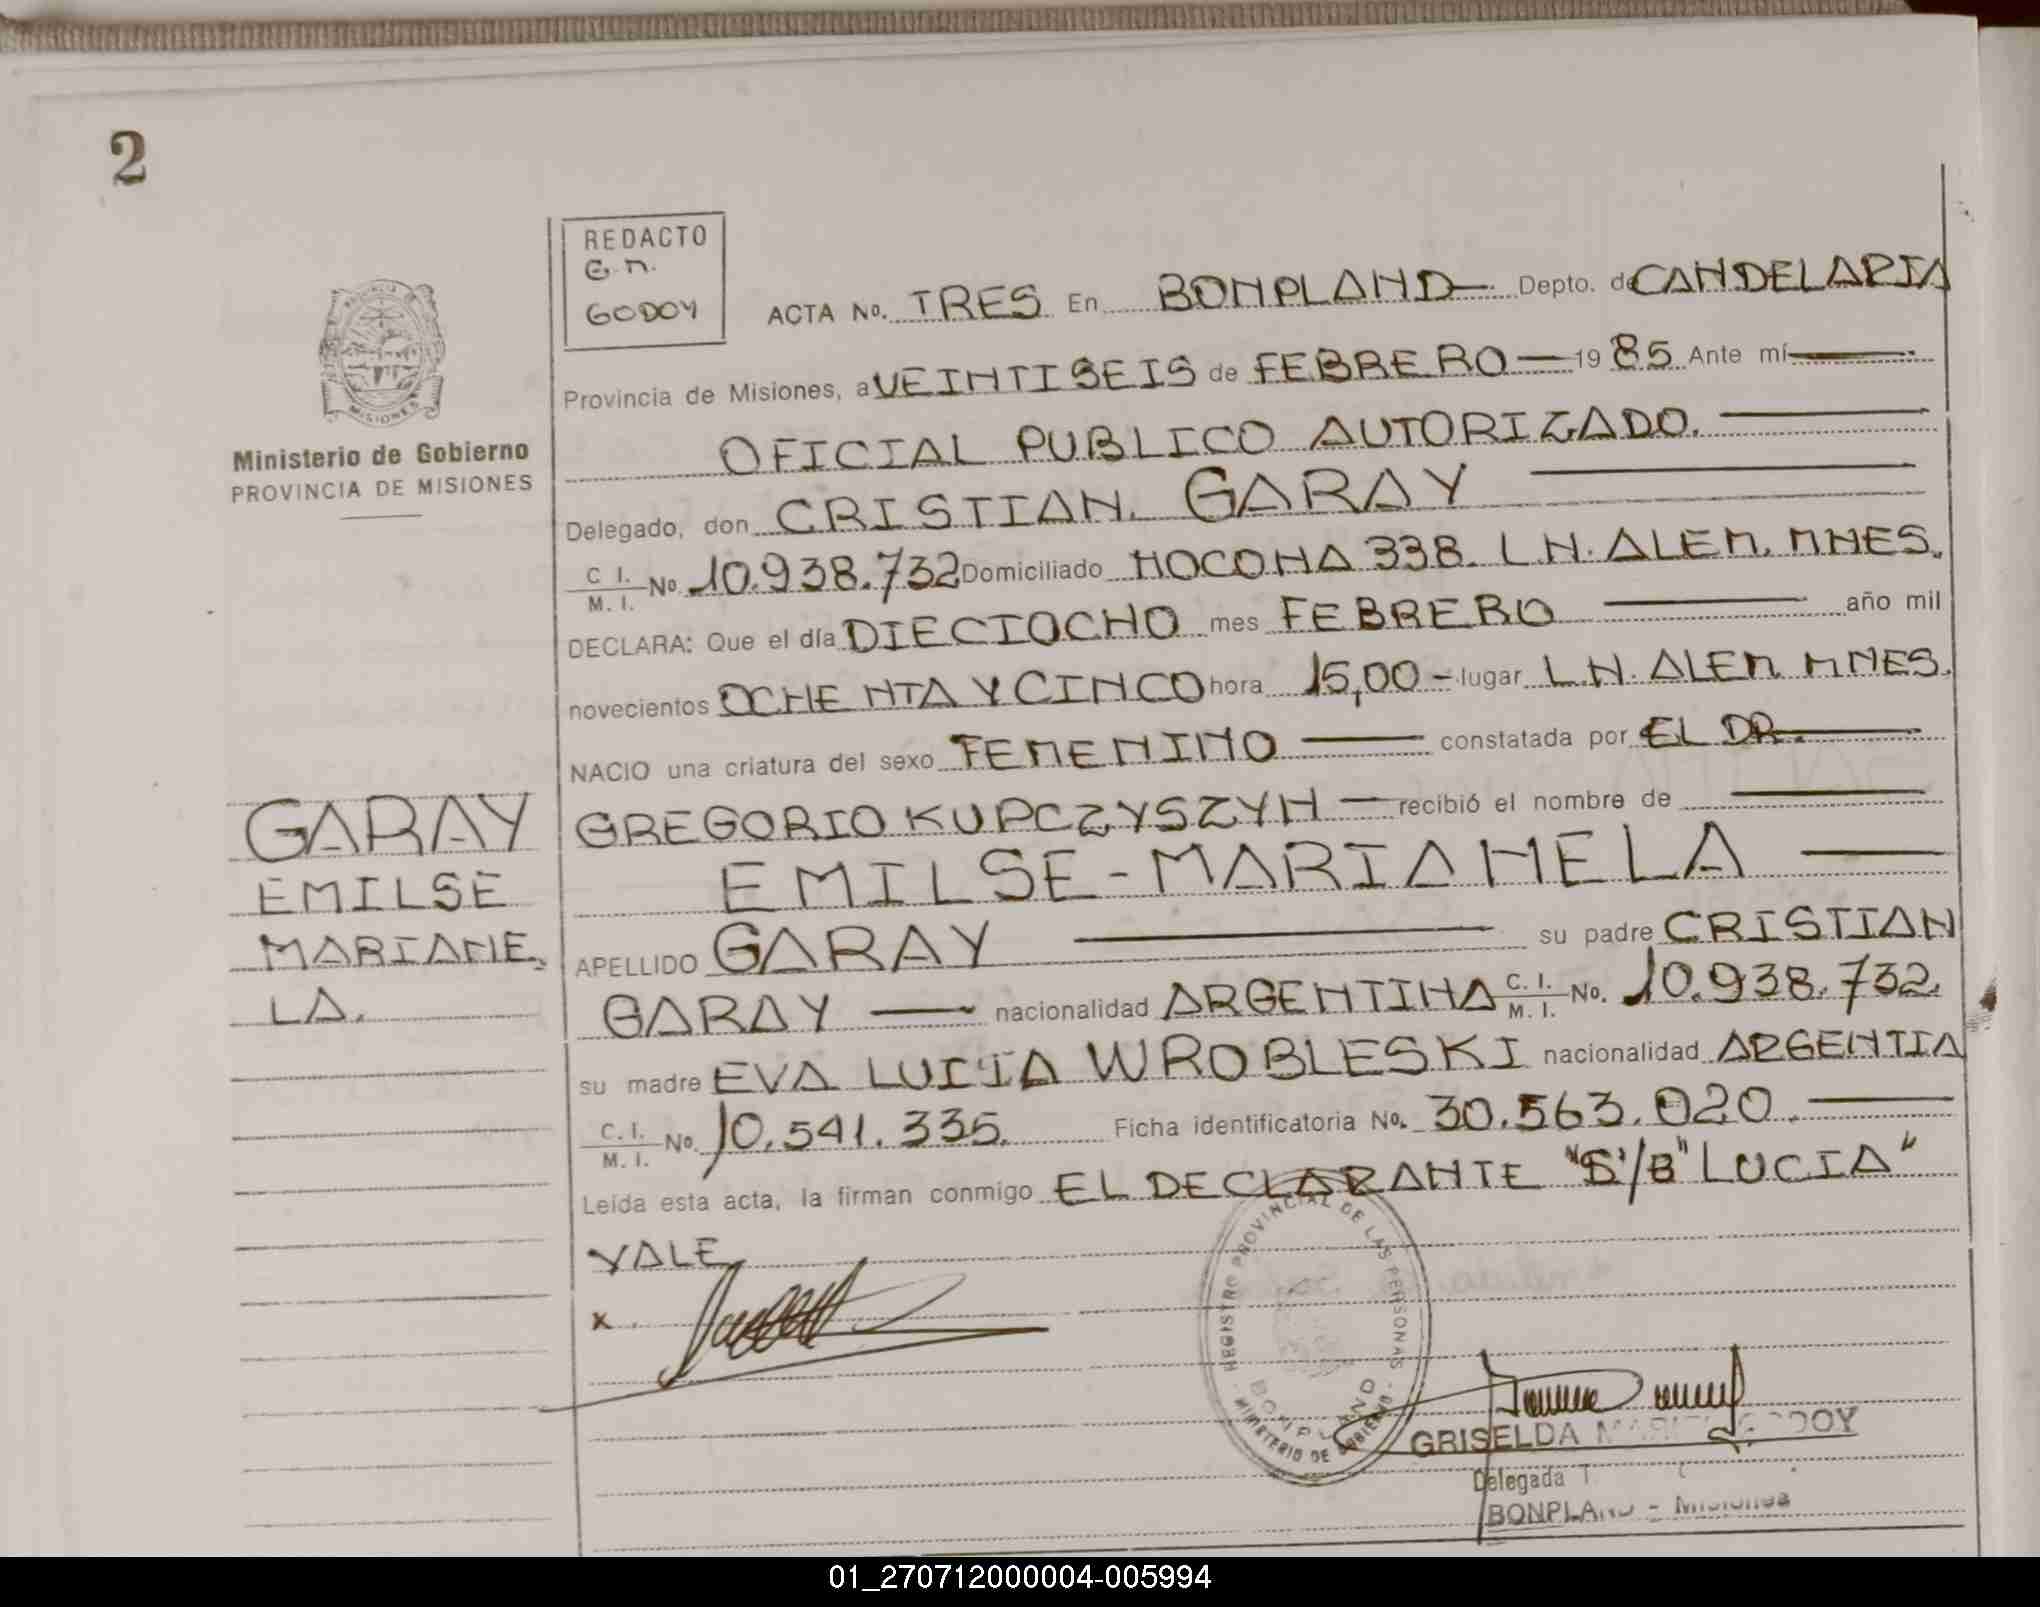 2
REDACTO
G.M.
GODOY
PROVINCIA DE
MISIONES
Ministerio de Gobierno
PROVINCIA DE MISIONES
ACTA No. TRES En BONPLAND Depto. de CANDELARIA
Provincia de Misiones, a VEINTISEIS de FEBRERO 19 85 Ante mí
OFICIAL PUBLICO AUTORIZADO.
Delegado, don CRISTIAN. GARAY
C I. M. I. No. 10.938.732 Domiciliado MOCONA 338. L.N. ALEM. MNES.
DECLARA: Que el día DIECIOCHO mes FEBRERO año mil
novecientos OCHENTA Y CINCO hora 15,00 - lugar L.N. ALEM MNES.
NACIO una criatura del sexo FEMENINO constatada por EL DR.
GREGORIO KUPCZYSZYN recibió el nombre de
EMILSE - MARIANELA
APELLIDO GARAY su padre CRISTIAN
GARAY nacionalidad ARGENTINA C. I. M. I. No. 10.938.732.
su madre EVA LUCIA WROBLESKI nacionalidad ARGENTIA
C. I. M. I. No. 10.541.335. Ficha identificatoria No. 30.563.020.
Leída esta acta, la firman conmigo EL DECLARANTE "S'/B" LUCIA"
VALE
x
GARAY
EMILSE
MARIANE
LA.
REGISTRO PROVINCIAL DE LAS PERSONAS
BONPLAND
MINISTERIO DE GOBIERNO
GRISELDA GODOY
Delegada
BONPLAND - Misiones
01_270712000004-005994